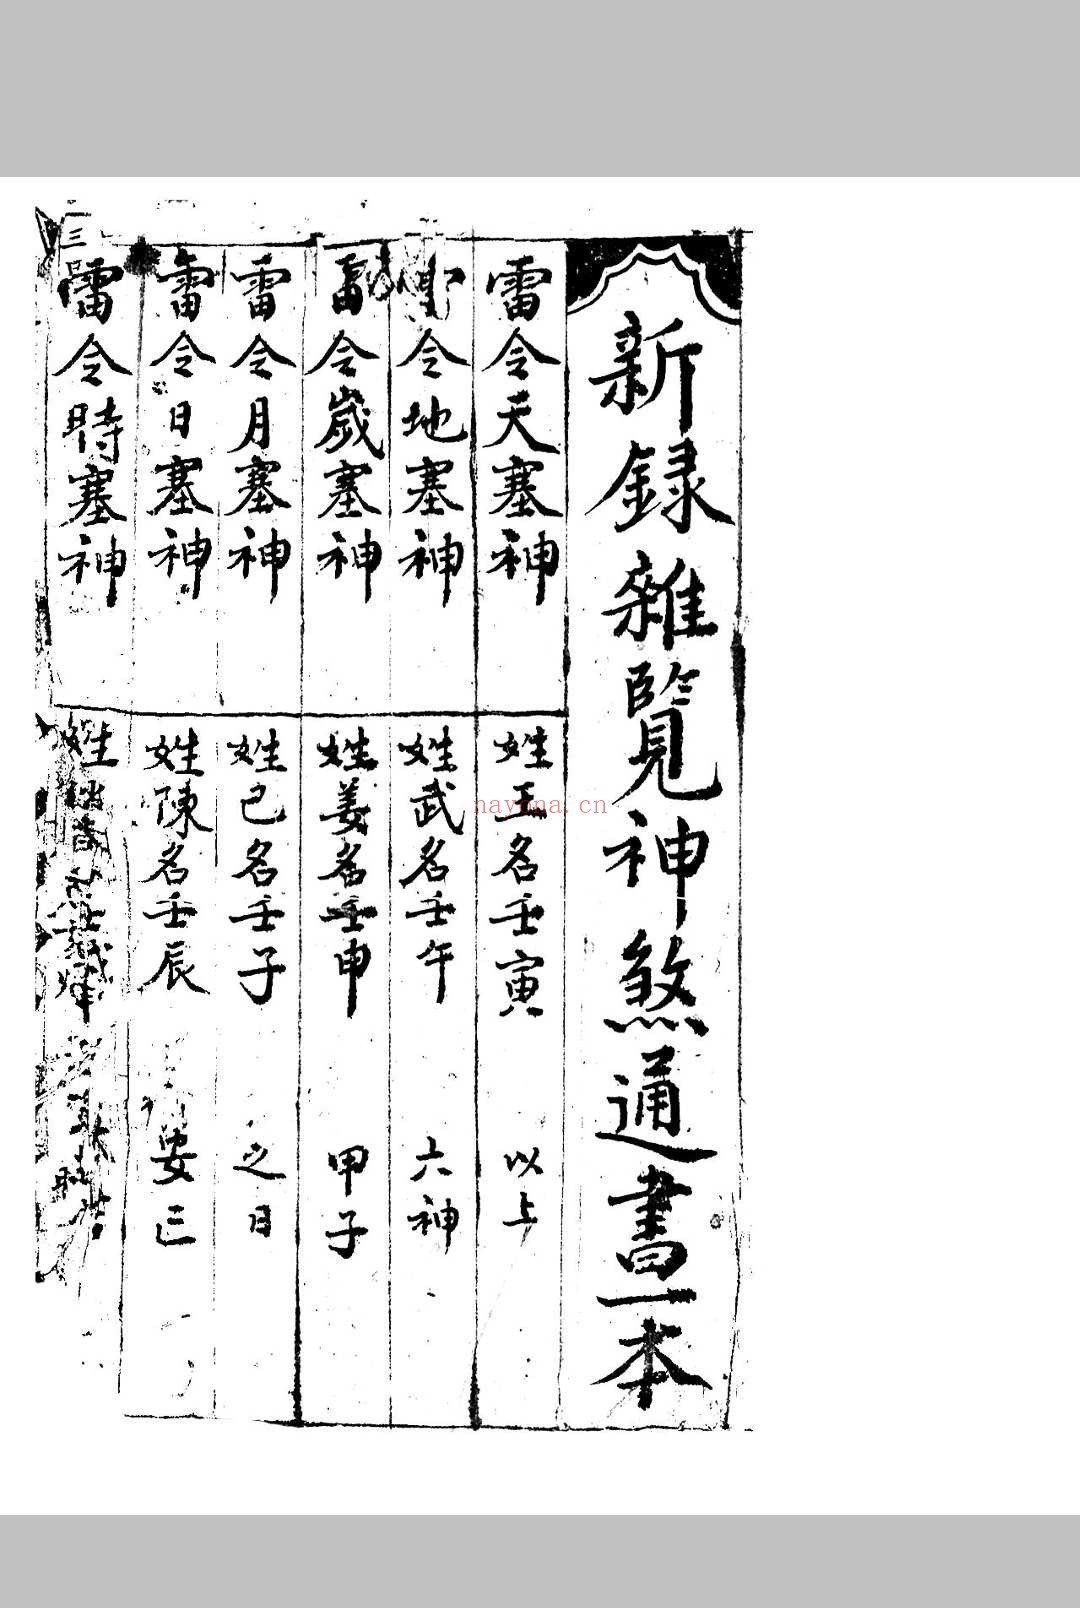 新録雜覽神煞通書一本
雷令天塞神 姓王名壬寅 以上
令地塞神 姓武名壬午 六神
雷令歲塞神 姓姜名壬申 甲子
雷令月塞神 姓己名壬子 之日
雷令日塞神 姓陳名壬辰 安
雷令時塞神 姓
nayona.cn